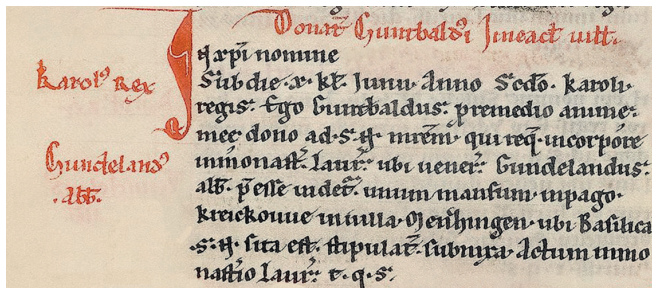 Donat̄ Guntbaldi In eade uilł.
In xp̄i nomine
karolꝰ Rex
Sub die·x·kł Junii·Anno Scd̄o·karoli·
regis· Ego Guntbaldus· p remedio anime·
mee dono ad·S·N· mr̄em· qui reqͥ· incorpore
Gundelandꝰ
inmonast̄·Laur̄· ubi uener̄· Gundelandus·
abb̄· p̄esse uidet̄· unum mansum· inpago·
·abb̄·
kreichouue in uilla· Menzhingen· ubi Basilica
·S·N· sita est· stipulat̄·subnixa·Actum inmo
nast̄io Laur̄· t·q·s·